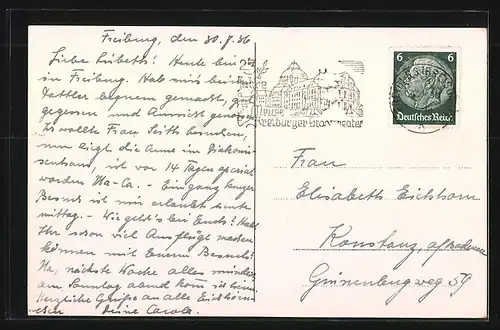 Freiburg, den 30./8. 36
Liebe Lisbeth! Heute bin ich
in Freiburg. Hab mir's beim
Dattler bequem gemacht, gut
gegessen und Aussicht genossen.
Es wollte Frau Seith besuchen,
nun liegt die Arme im Diakonis-
senhaus, ist vor 14 Tagen operiert
worden Ma-Ca. - Ein ganz kurzer
Besuch ist mir erlaubt heute
mittag. - Wie geht's bei Euch? Habt
Ihr schon viel Ausflüge machen
können mit Eurem Besuch?
Na, nächste Woche alles mündlich
am Sonntag abend kom ich heim.
Herzliche Grüße an alle Eichhörn-
chen Deine Carola.
Freiburger Stadttheater
6 6
Deutsches Reich
Frau
Elisabeth Eichhorn
Konstanz, a/Bodensee
Guinenburgweg 59